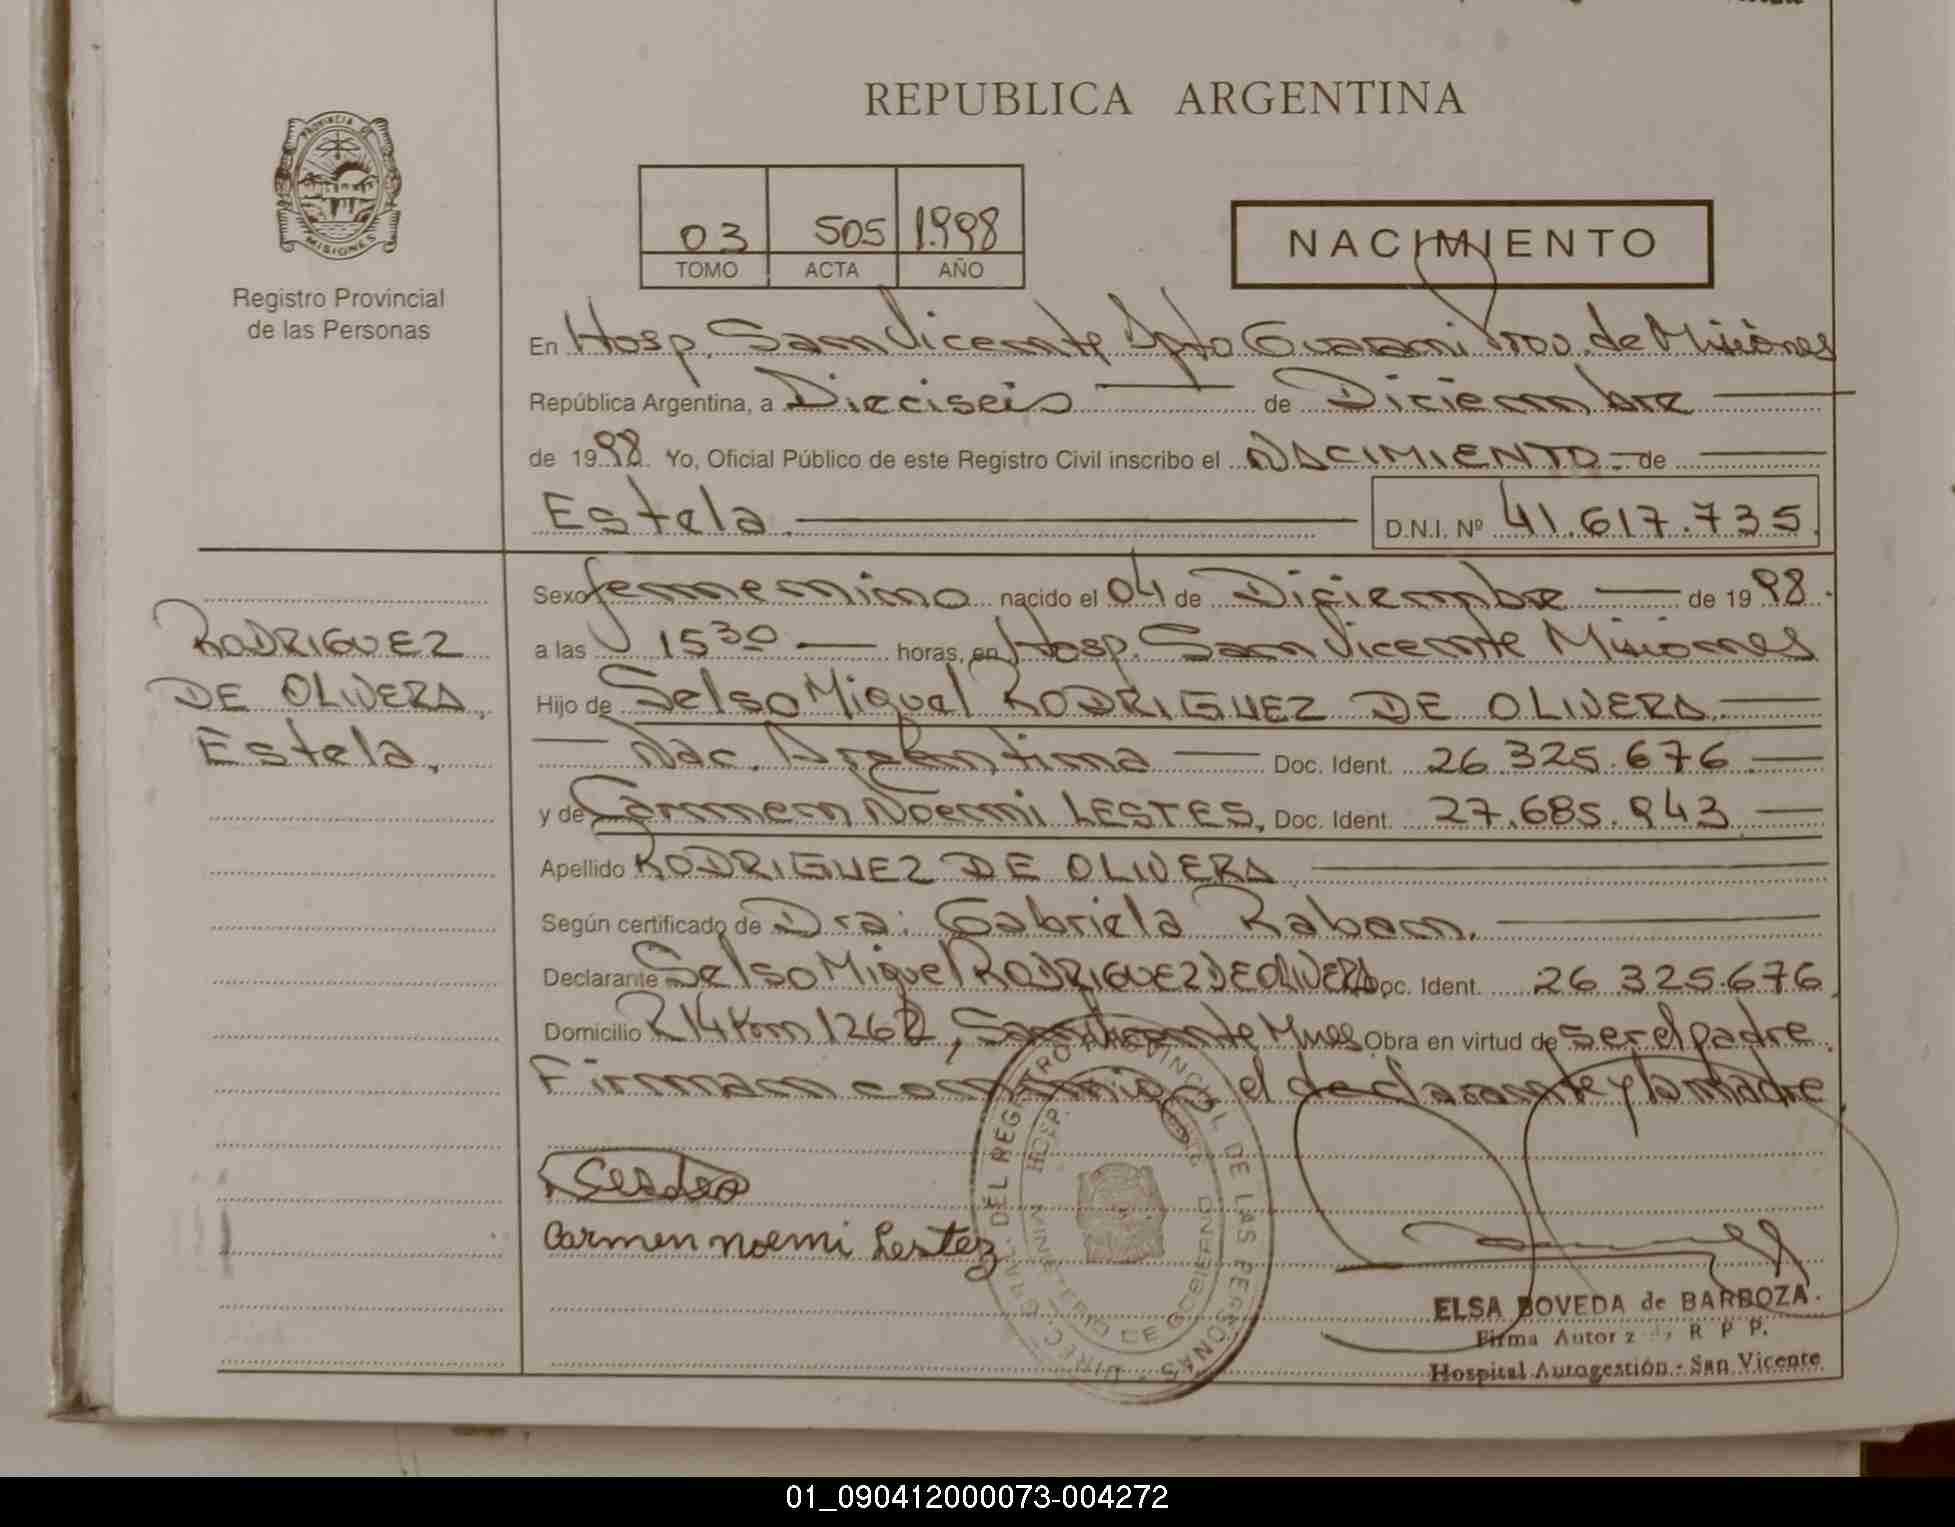 REPUBLICA ARGENTINA
PROVINCIA DE
MISIONES
Registro Provincial
de las Personas
03 505 1.998
TOMO ACTA AÑO
NACIMIENTO
En Hosp. San Vicente Dpto Guarani Prov. de Misiones
República Argentina, a Dieciseis de Diciembre
de 1998 Yo, Oficial Público de este Registro Civil inscribo el NACIMIENTO de
Estela. D.N.I. Nº 41.617.735
Sexo femenino nacido el 04 de Diciembre de 1998.
a las 15 30 horas, en Hosp. San Vicente Misiones
Hijo de Selso Miguel RODRIGUEZ DE OLIVERA
Nac. Argentina Doc. Ident. 26.325.676
y de Carmen Noemi LESTES, Doc. Ident. 27.685.943
Apellido RODRIGUEZ DE OLIVERA
Según certificado de Dra: Gabriela
Declarante Selso Miguel RODRIGUEZ DE OLIVERA Doc. Ident. 26.325.676
Domicilio R14 Km 1262, San Vicente Mnes Obra en virtud de ser el padre.
Firman conmigo el declarante y la madre
RODRIGUEZ
DE OLIVERA,
Estela.
Carmen noemi Lestez
DIREC. GRAL. DEL REGISTRO PROVINCIAL DE LAS PERSONAS
HOSP.
MINISTERIO DE GOBIERNO
ELSA BOVEDA de BARBOZA
Firma R P P.
Hospital Autogestión - San Vicente
01_090412000073-004272